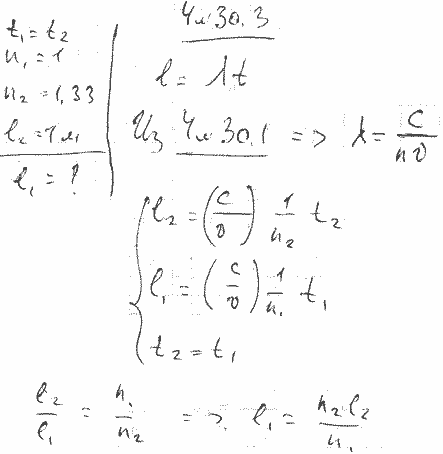 Ч и 30.3
t₁ = t₂
n₁ = 1
n₂ = 1,33
l₂ = 1 м
l₁ = ?
l = λt
Из Ч и 30.1 => λ = c/(nν)
l₂ = (c/ν) 1/n₂ t₂
l₁ = (c/ν) 1/n₁ t₁
t₂ = t₁
l₂/l₁ = n₁/n₂ => l₁ = n₂l₂/n₁